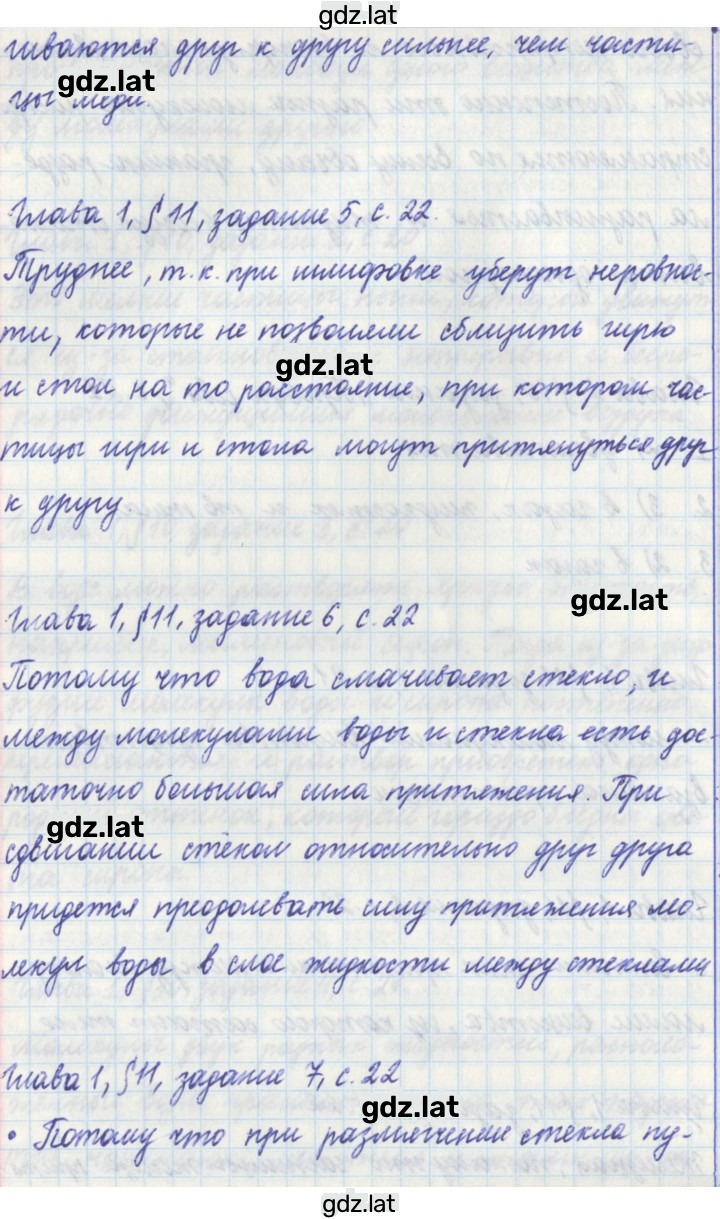 gdz.lat
гиваются друг к другу сильнее, чем части-
gdz.lat
цы меди.
Глава 1, § 11, задание 5, с. 22.
Труднее, т. к. при шлифовке уберут неровнос-
ти, которые не позволяли сблизить гирю
gdz.lat
и стол на то расстояние, при котором час-
тицы гири и стола могут притянуться друг
к другу.
gdz.lat
Глава 1, § 11, задание 6, с. 22
Потому что вода смачивает стекло, и
между молекулами воды и стекла есть дос-
таточно большая сила притяжения. При
gdz.lat
сдвигании стёкол относительно друг друга
придется преодолевать силу притяжения мо-
лекул воды в слое жидкости между стеклами
Глава 1, § 11, задание 7, с. 22
gdz.lat
• Потому что при размягчении стекла пу-
gdz.lat